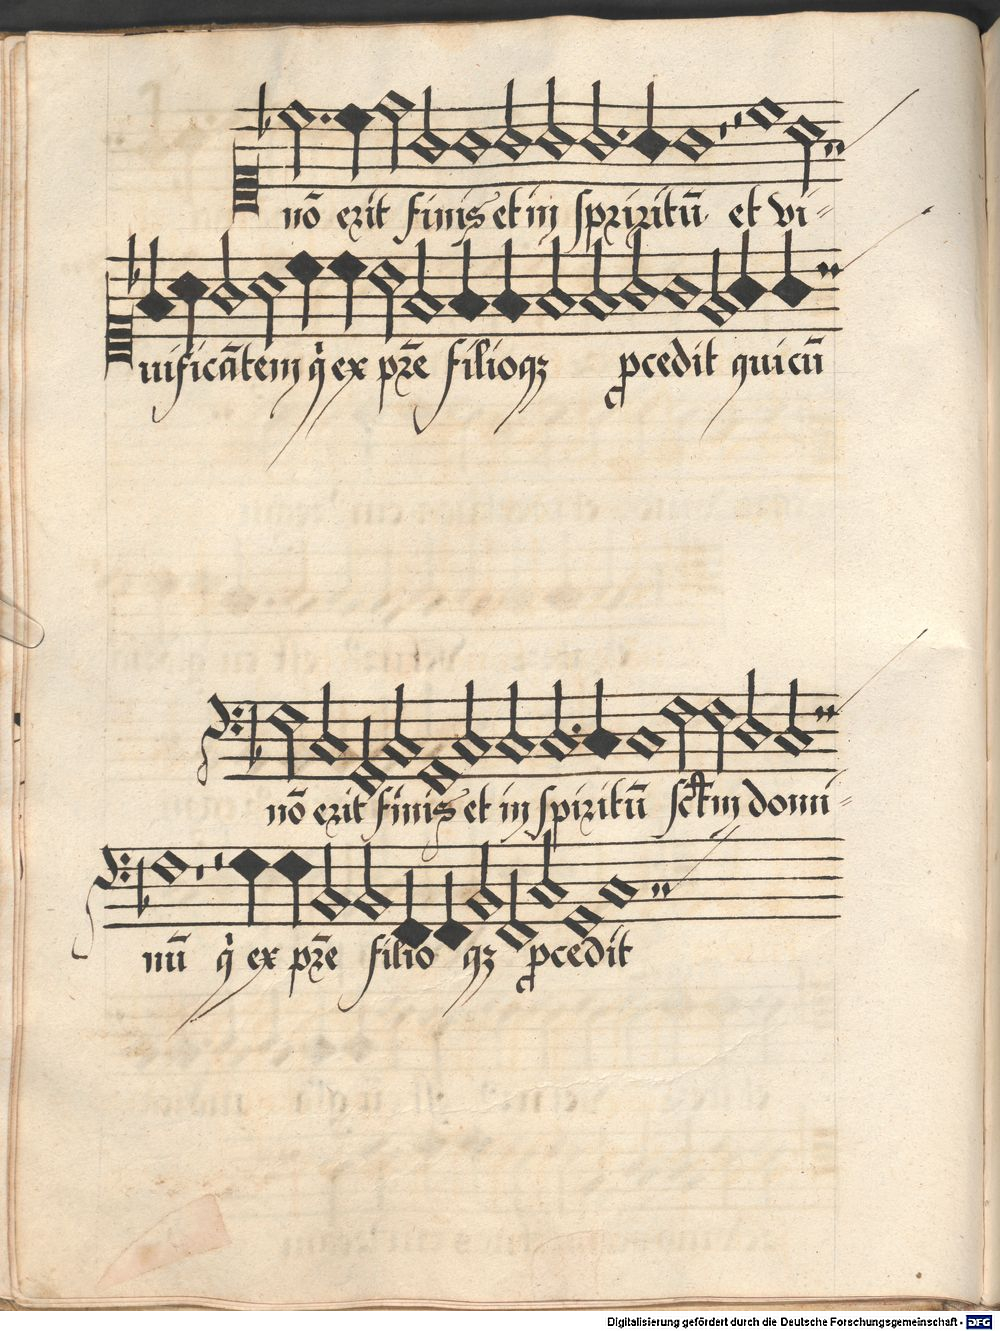 nō erit finis et in spiritū et vi=
uificātem q̇ ex pr̄e filioqꝫ ꝓcedit quicū
nō erit finis et in spiritū sc̄tm domi=
nū q̇ ex pr̄e filioqꝫ ꝓcedit
Digitalisierung gefördert durch die Deutsche Forschungsgemeinschaft - DFG